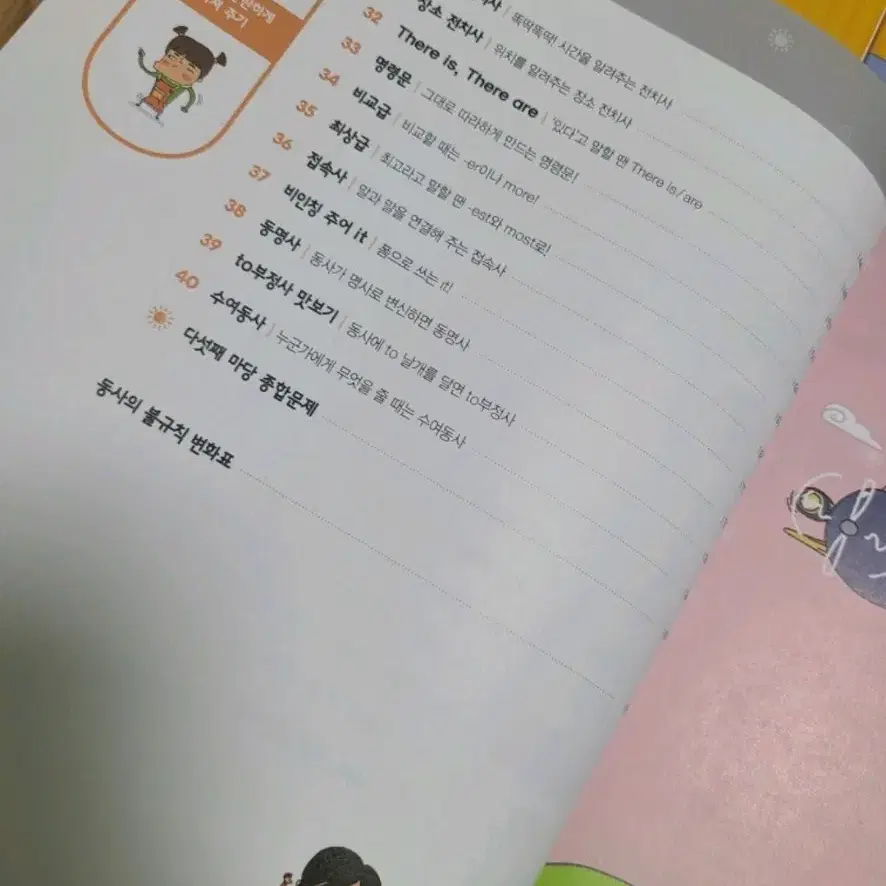 전치사 | 똑딱똑딱! 시간을 알려주는 전치사
장소 전치사 | 위치를 알려주는 장소 전치사
32 There is, There are | '있다'고 말할 땐 There is/are
33 명령문 | 그대로 따라하게 만드는 명령문!
34 비교급 | 비교할 때는 -er이나 more!
35 최상급 | 최고라고 말할 땐 -est와 most로!
36 접속사 | 말과 말을 연결해 주는 접속사
37 비인칭 주어 it | 폼으로 쓰는 it!
38 동명사 | 동사가 명사로 변신하면 동명사
39 to부정사 맛보기 | 동사에 to 날개를 달면 to부정사
40 수여동사 | 누군가에게 무엇을 줄 때는 수여동사
다섯째 마당 종합문제
동사의 불규칙 변화표
주기